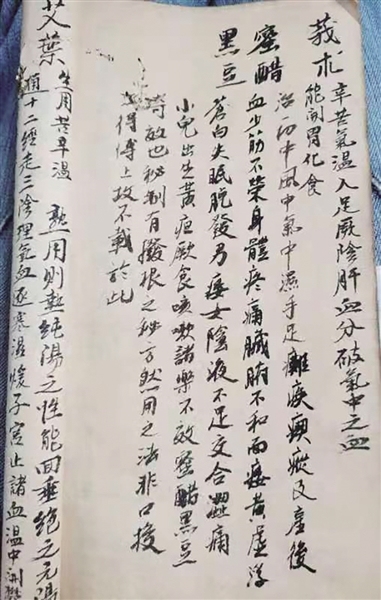 莪朮 辛苦氣温入足厥陰肝血分破氣中之血
能開胃化食
治一切中風中氣中濕手足癱瘓瘲及產後
蜜醋 血少筋不榮身體疼痛臟腑不和面痿黃虛浮
黑豆 蒼白失眠脫發男痿女陰液不足交合澀痛
小兒出生黃疸厭食咳嗽諸藥不效蜜醋黑豆
奇效也秘制有撥根之秘方然用之法非口授
得傳上故不載於此
艾葉 生用苦辛温 熟用則熱純陽之性能回垂絕之元陽
通十二經走三陰理氣血逐寒濕煖子宮止諸血温中開